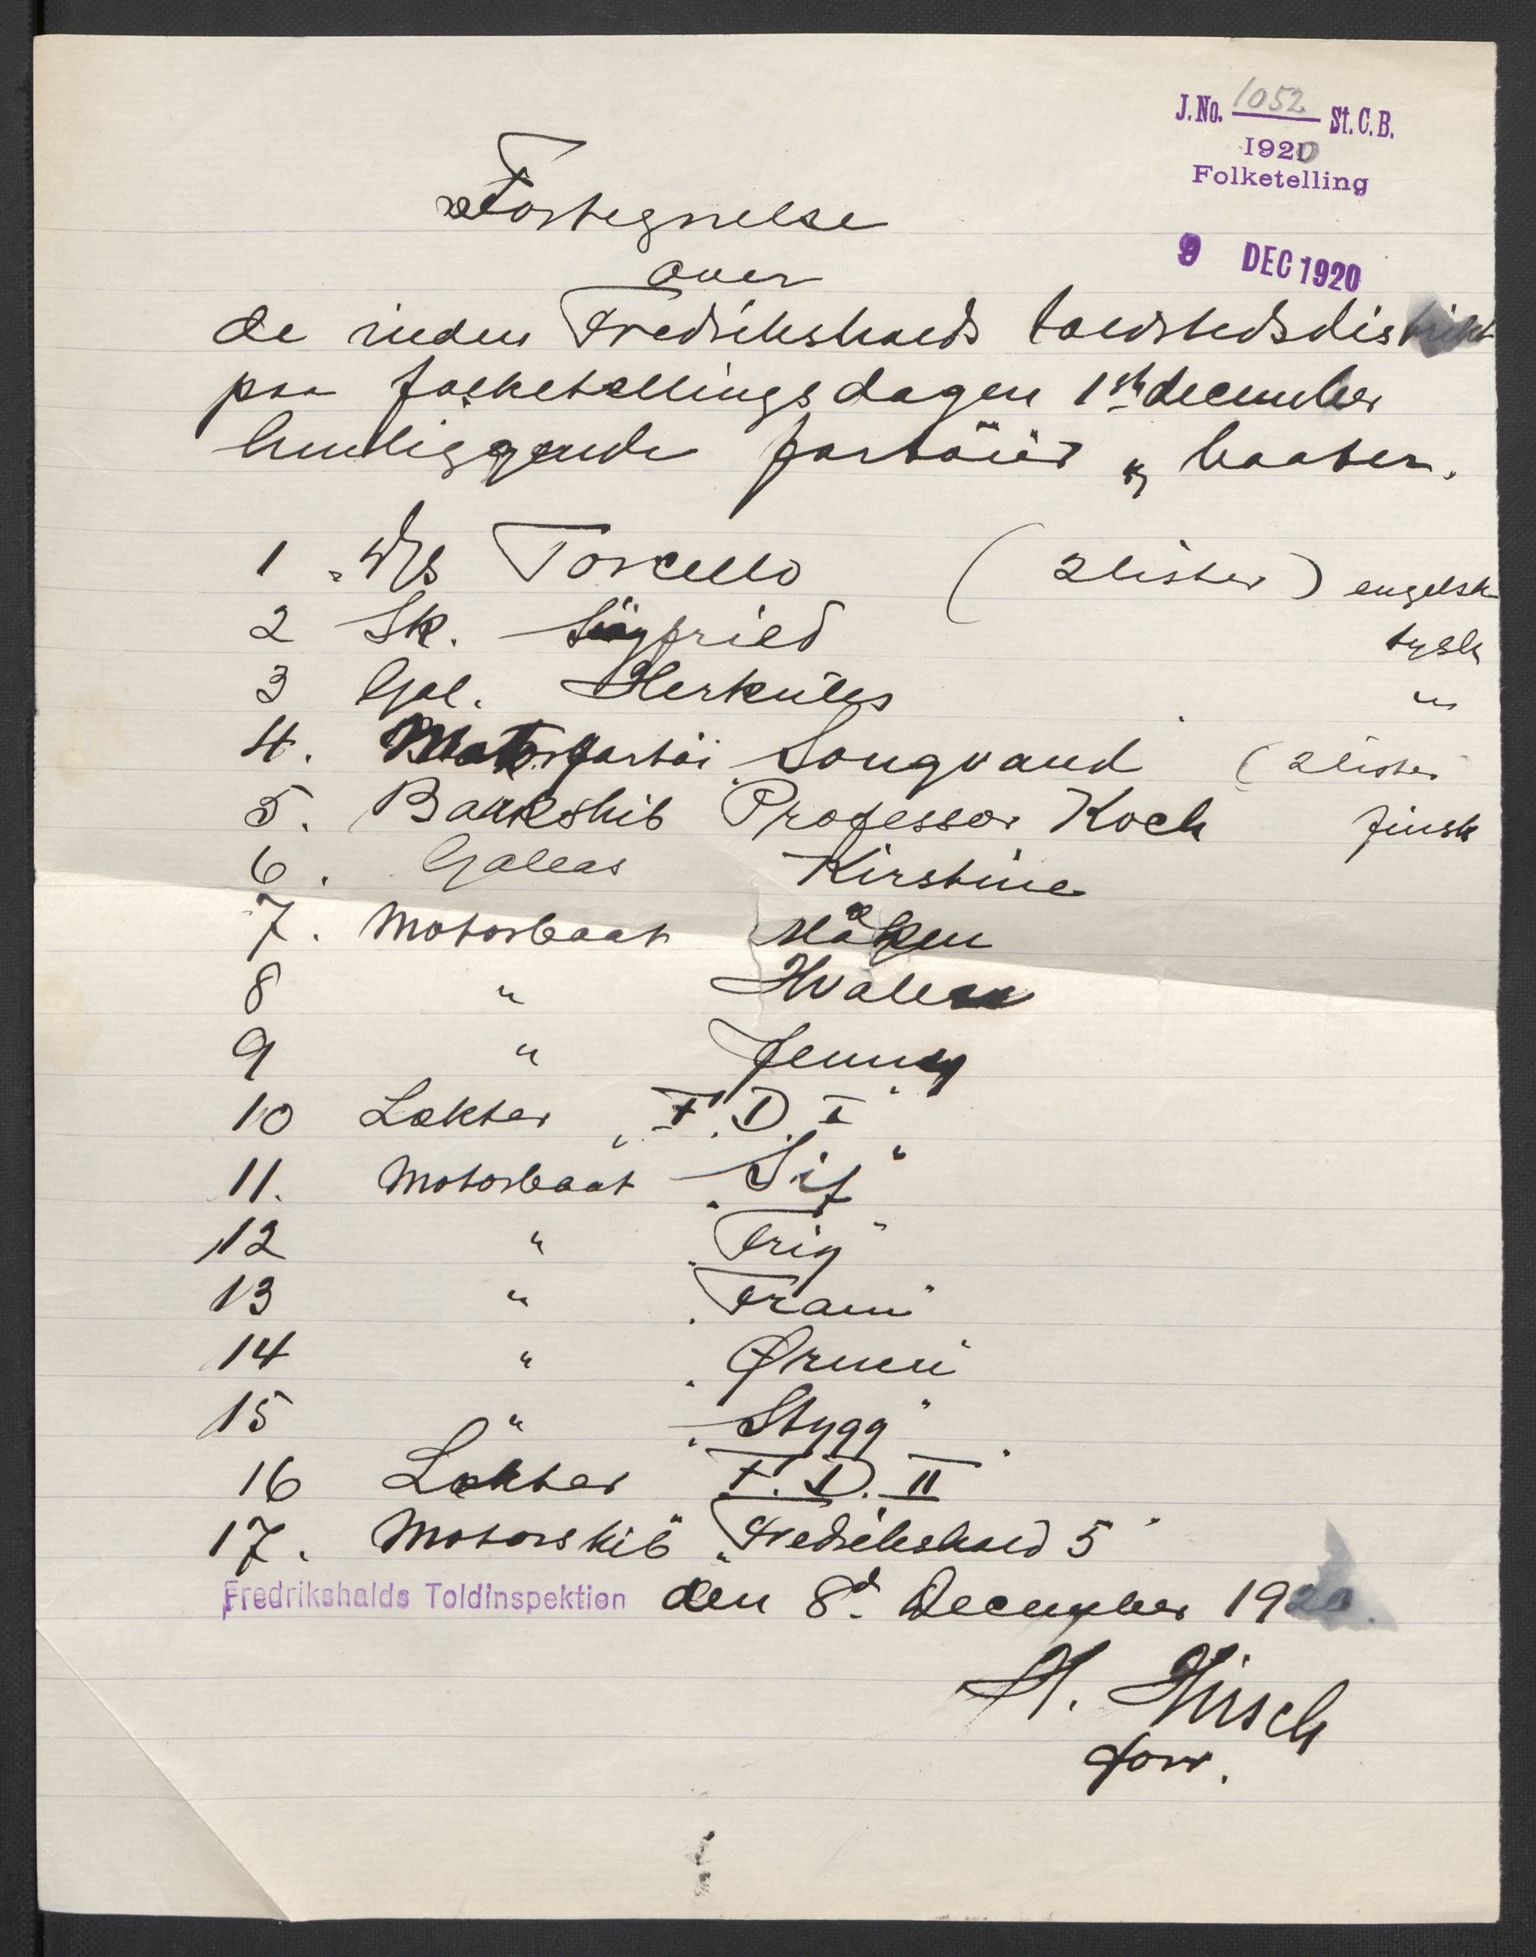 J. No. 1052 St. C. B.
1920
Folketelling
9 DEC 1920
Fortegnelse
over
de inden Fredrikshalds toldstedsdistrikt
paa folketellingsdagen 1ste december
henliggende fartöier og baater.
1 D/S Torcello (2 lister) engelsk
2 Sk. Siegfried tysk
3 Gal. Herkules "
4. Motorfartöi Songvand (2 lister
5. Barkskib "Professor Koch finsk
6. Galeas Kirstine
7. Motorbaat Håken
8 " Hvalen
9 " Jenny
10 Lekter "F. D. I"
11. Motorbaat "Sif"
12 " "Trig"
13 " "Fram"
14 " "Ørnen"
15 " "Stygg"
16 Lekter F. D. II"
17. Motorskib "Fredrikshald 5"
Fredrikshalds Toldinspektion den 8de December 1920.
H. Hirsch